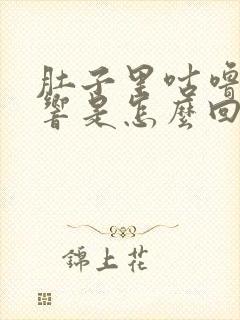 肚子里咕噜
響是怎麼回
錦上花